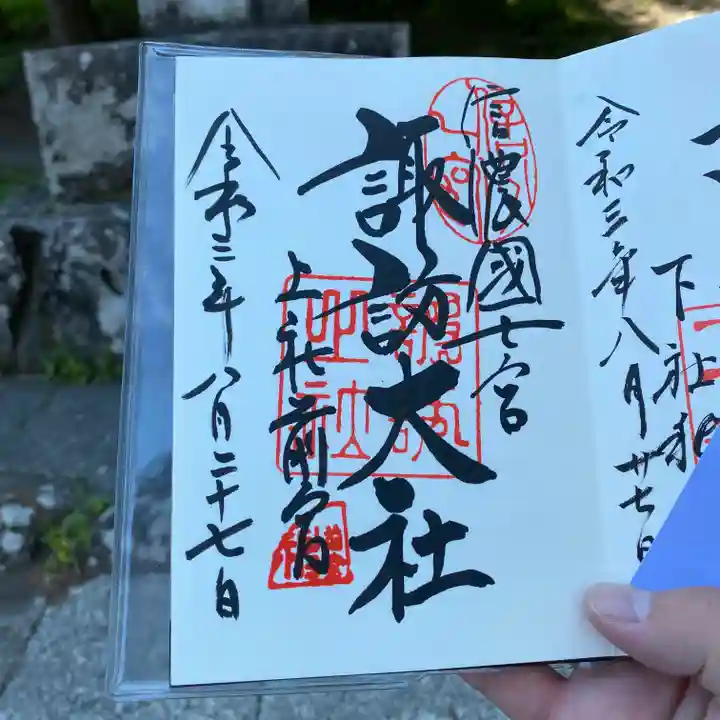 下社秋
令和三年八月廿七日
信濃國一宮
諏訪大社
上社前宮
令和三年八月二十七日